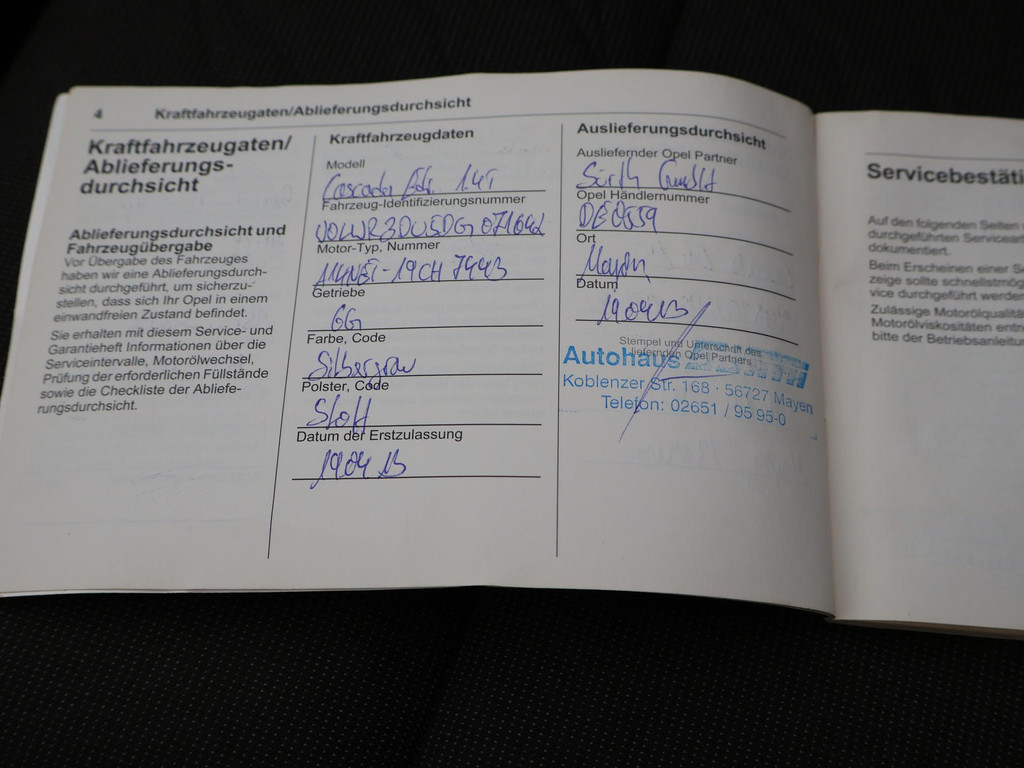 4 Kraftfahrzeugaten/Ablieferungsdurchsicht
Kraftfahrzeugaten/
Ablieferungs-
durchsicht
Ablieferungsdurchsicht und
Fahrzeugübergabe
Vor Übergabe des Fahrzeuges
haben wir eine Ablieferungsdurch-
sicht durchgeführt, um sicherzu-
stellen, dass sich Ihr Opel in einem
einwandfreien Zustand befindet.
Sie erhalten mit diesem Service- und
Garantieheft Informationen über die
Serviceintervalle, Motorölwechsel,
Prüfung der erforderlichen Füllstände
sowie die Checkliste der Abliefe-
rungsdurchsicht.
Kraftfahrzeugdaten
Modell
Cascada Edi. 1.4T
Fahrzeug-Identifizierungsnummer
Motor-Typ, Nummer
Getriebe
6G
Farbe, Code
Silbergrau
Polster, Code
Stoff
Datum der Erstzulassung
190413
Auslieferungsdurchsicht
Ausliefernder Opel Partner
Sürth GmbH
Opel Händlernummer
DE0859
Ort
Mayen
Datum
190413
Stempel und Unterschrift des
liefernden Opel Partners
Autohaus
Koblenzer Str. 168 · 56727 Mayen
Telefon: 02651 / 95 95-0
Servicebestäti
Auf den folgenden Seiten
durchgeführten Servicear
dokumentiert.
Beim Erscheinen einer Se
zeige sollte schnellstmög
vice durchgeführt werden
Zulässige Motorölqualitä
Motorölviskositäten entn
bitte der Betriebsanleitu